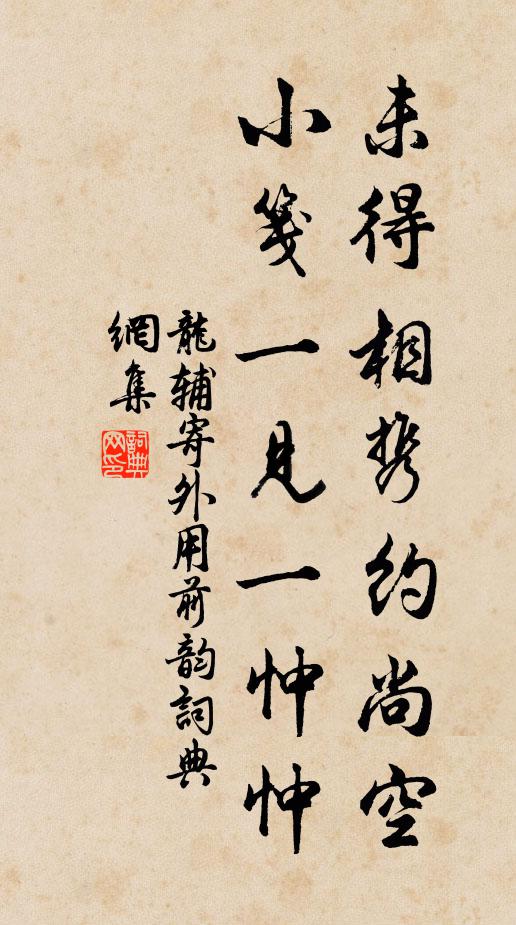 未得相携約尚空
小箋一見一忡忡
龍輔寄外用前韵詞典
網集
詞典
网印